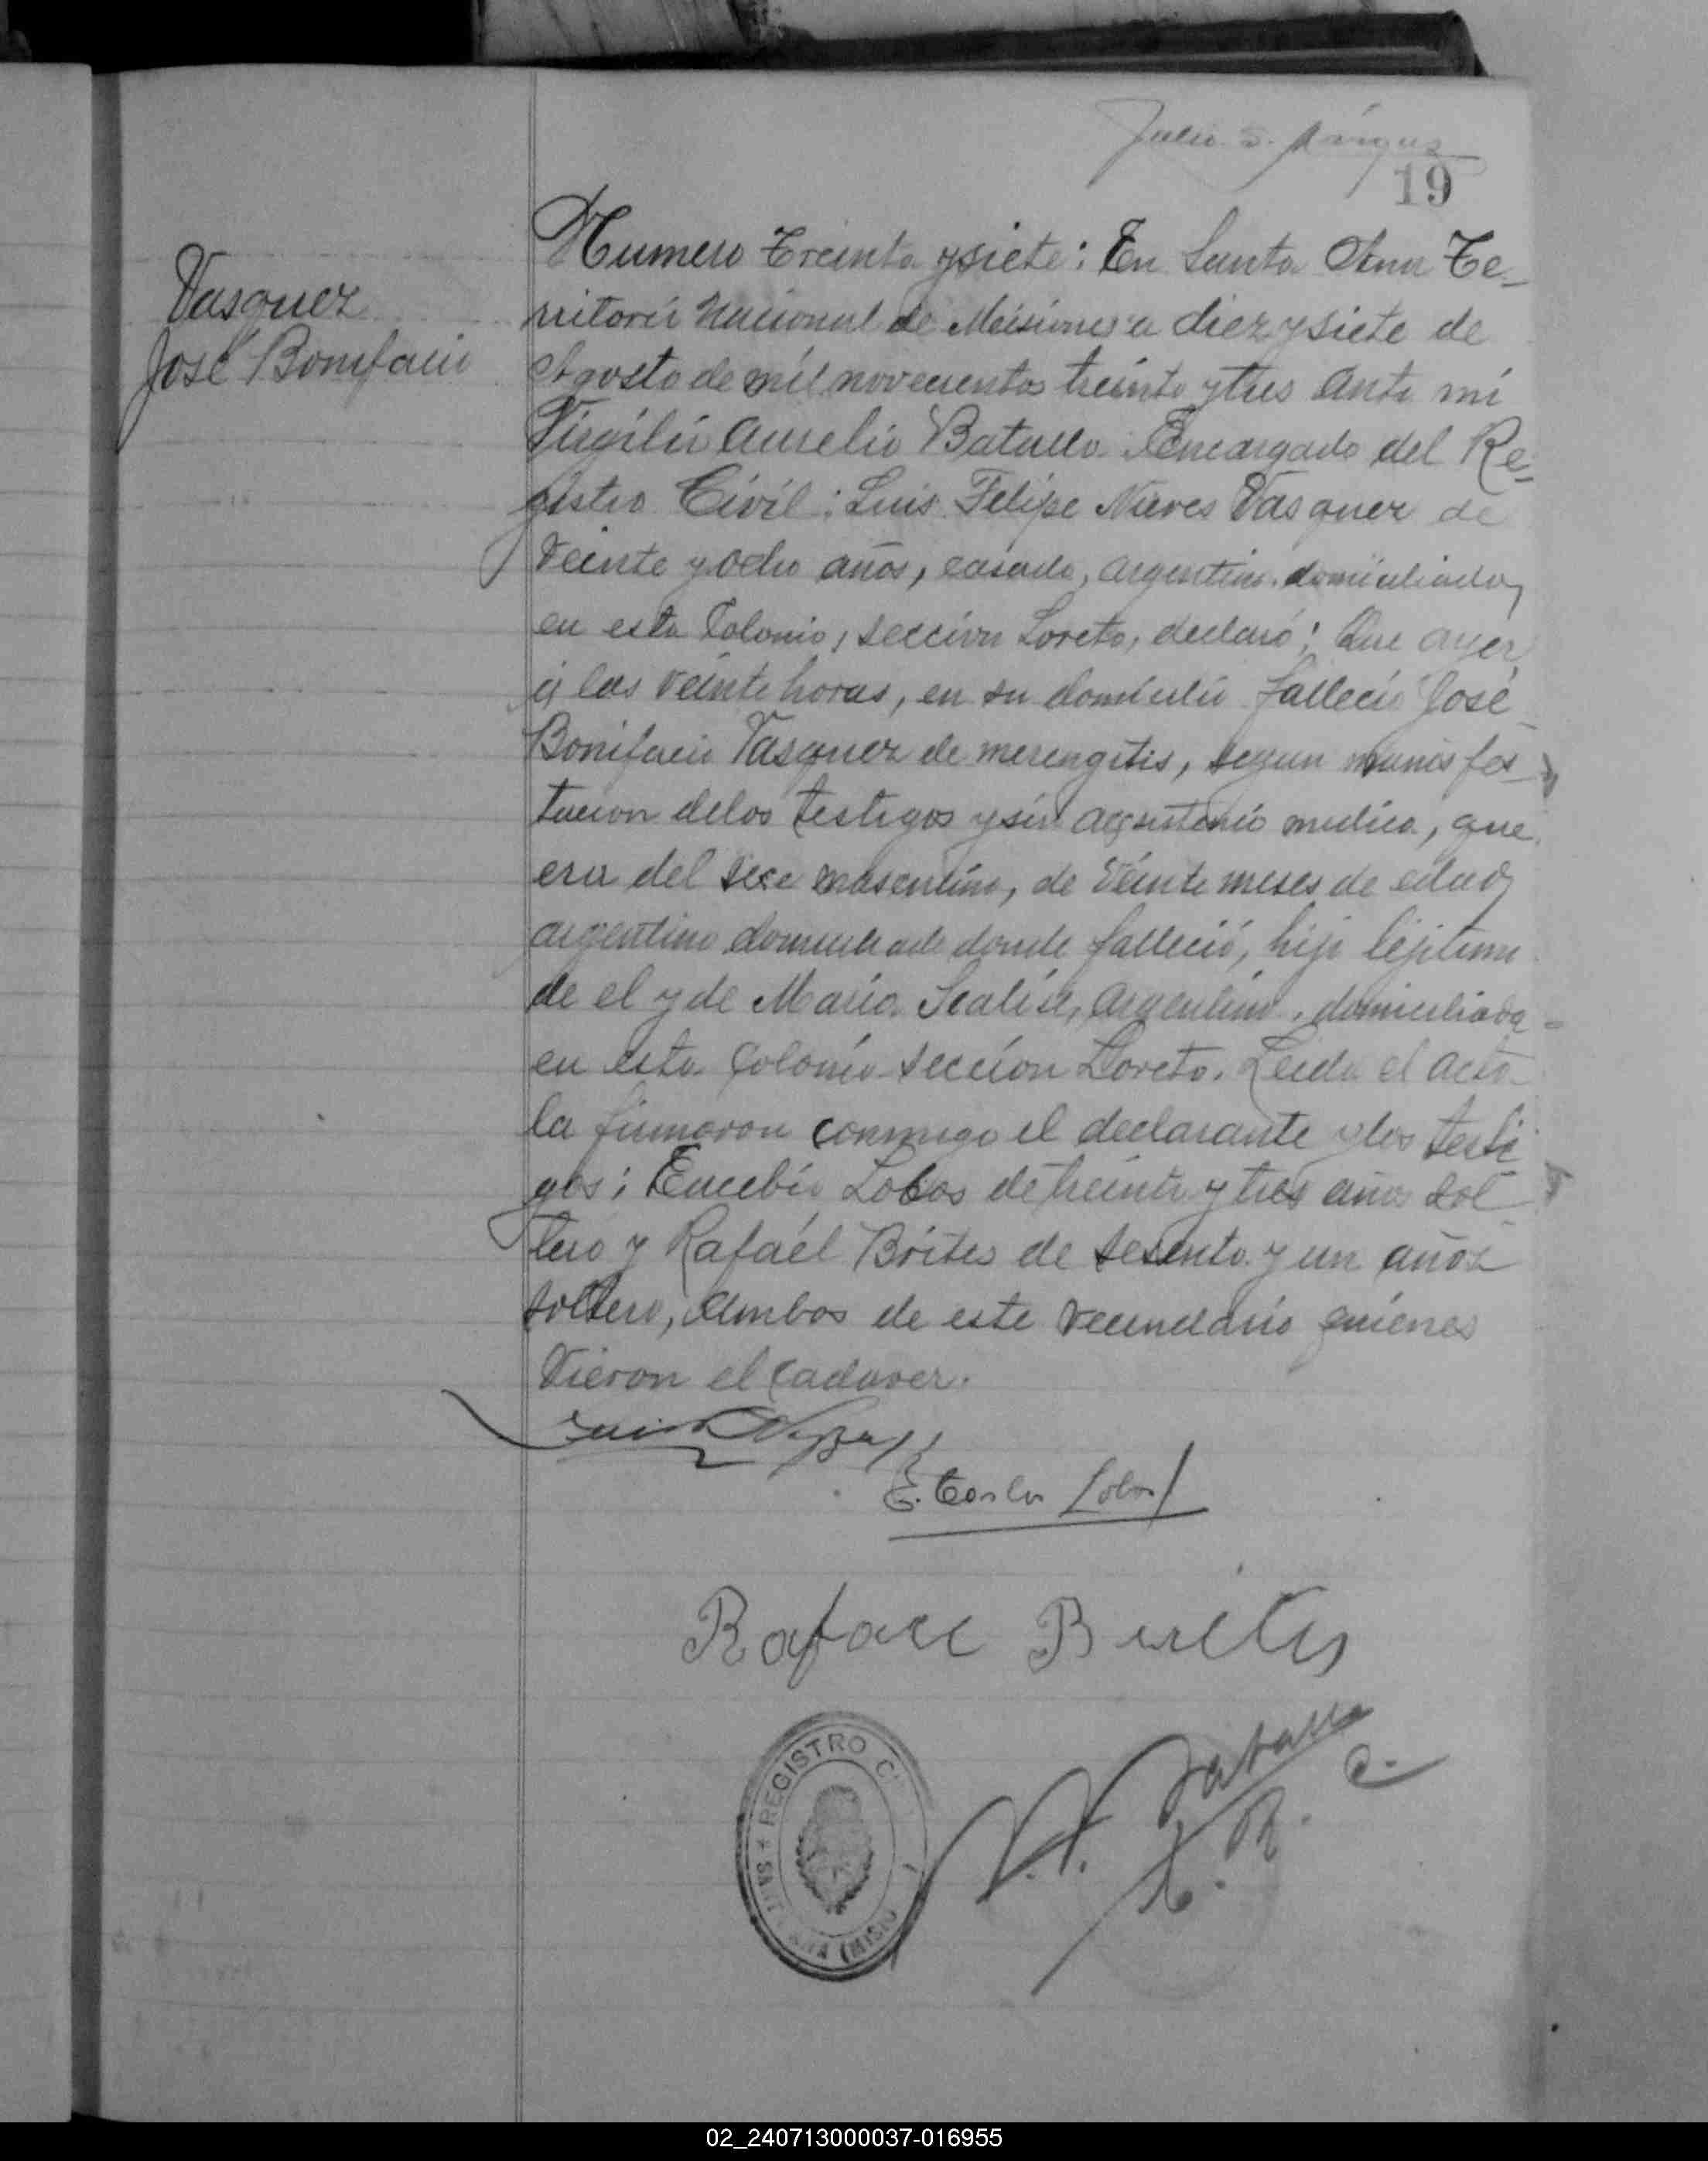 Julio S.
19
Vasquez
José Bonifacio
Numero Treinta y siete: En Santa Ana Te-
rritorio Nacional de Misiones a diez y siete de
Agosto de mil novecientos treinta y tres ante mi
Virgilio Aurelio Batalla Encargado del Re-
gistro Civil: Luis Felipe Nieves Vasquez de
veinte y ocho años, casado, argentino, domiciliado
en esta Colonia, seccion Loreto, declaró: Que ayer
á las veinte horas, en su domicilio fallecio José
Bonifacio Vasquez de merengitis, segun manifes-
tacion de los testigos y sin medica, que
era del sexo masculino, de veinte meses de edad
argentino domiciliado donde falleció, hijo lejitimo
de el y de Maria Scalise, argentina, domiciliada
en esta Colonia seccion Loreto. Leida el acta
la firmaron conmigo el declarante y los testi
gos; Eucebio Lobos de treinta y tres años sol
tero y Rafaél Brites de sesenta y un años
soltero, ambos de este vecindario quienes
vieron el cadaver.
E. Carlos Lobos
Rafael
V. A. Batalla
E. R. C.
REGISTRO CI
SANTA ANA (MISIO
02_240713000037-016955